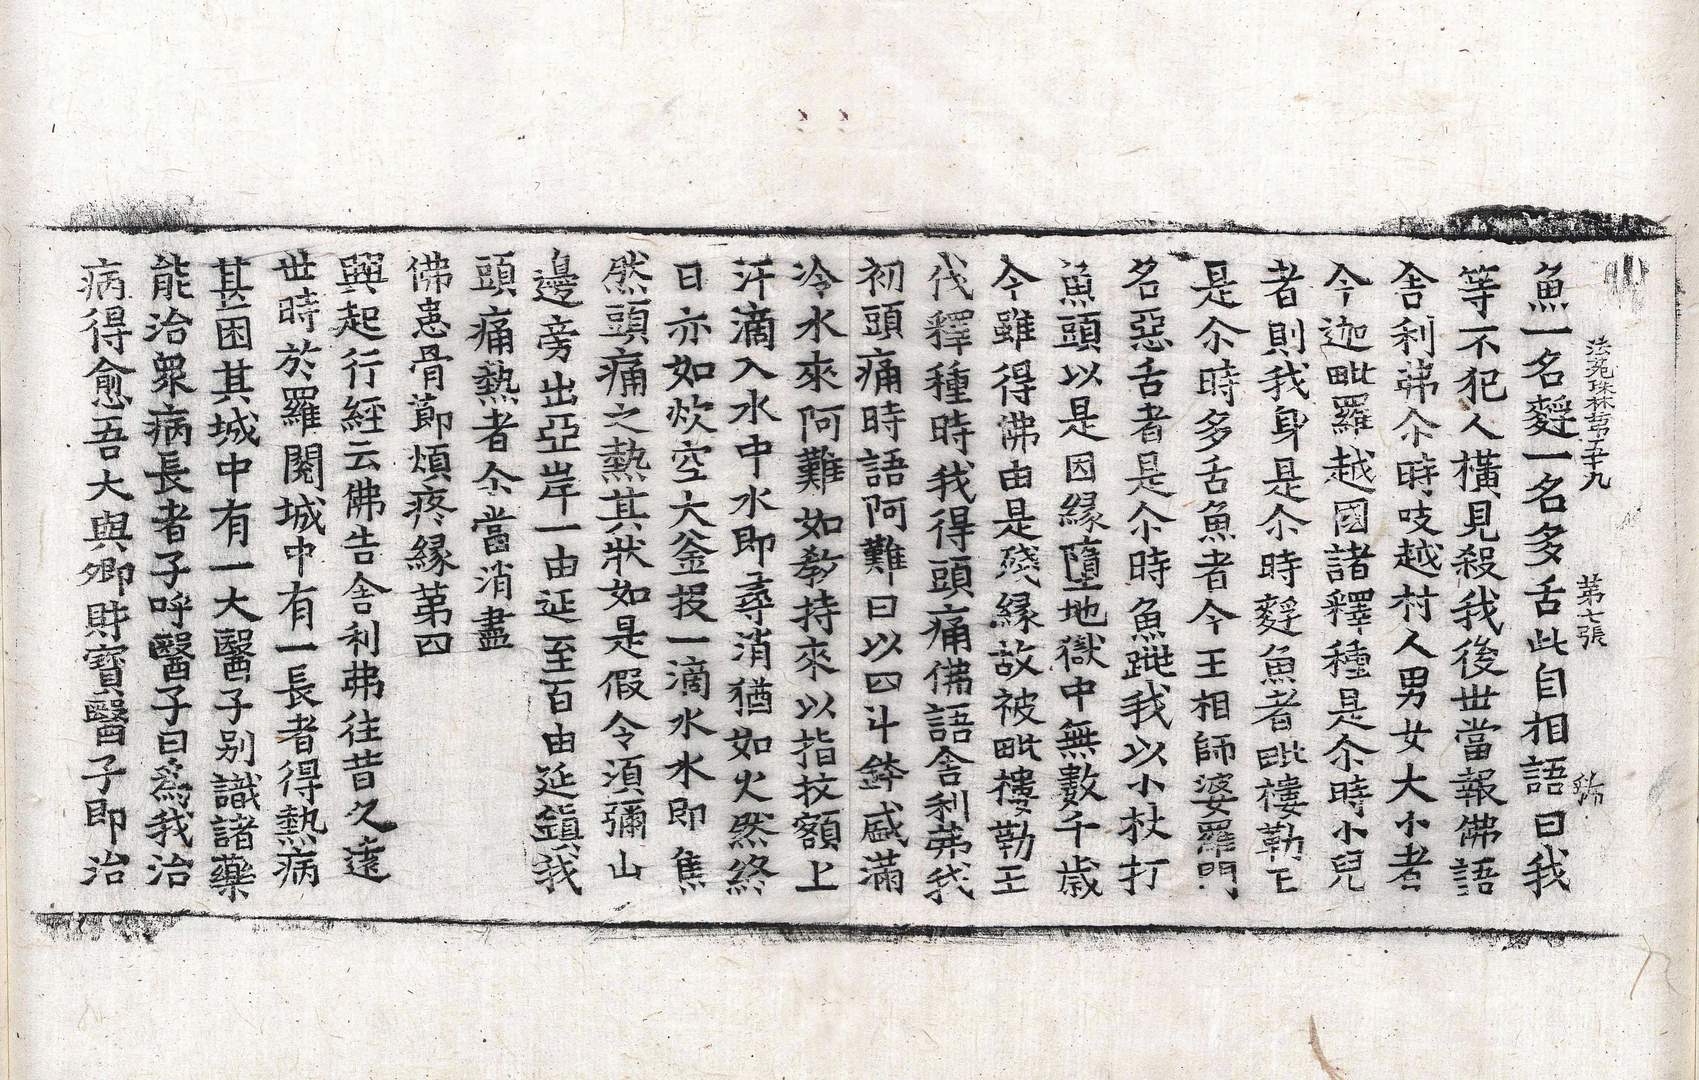 法苑珠林第五十九 第七張
魚一名𪌘一名多舌此自相語曰我
等不犯人橫見殺我後世當報佛語
舍利弗尒時吱越村人男女大小者
今迦毗羅越國諸釋種是尒時小兒
者則我身是尒時𪌘魚者毗樓勒王
是尒時多舌魚者今王相師婆羅門
名惡舌者是尒時魚跳我以小杖打
魚頭以是因緣墮地獄中無數千歲
今雖得佛由是殘緣故被毗樓勒王
伐釋種時我得頭痛佛語舍利弗我
初頭痛時語阿難曰以四斗鉢盛滿
冷水來阿難如教持來以指抆額上
汗滴入水中水即尋消猶如火然終
日亦如炊空大釜投一滴水水即燋
然頭痛之熱其狀如是假令須彌山
邊旁出亞岸一由延至百由延鎮我
頭痛熱者尒當消盡
佛患骨節煩疼緣第四
興起行經云佛告舍利弗往昔久遠
世時於羅閱城中有一長者得熱病
甚困其城中有一大醫子別識諸藥
能治衆病長者子呼醫子曰爲我治
病得愈吾大與卿財寶醫子即治